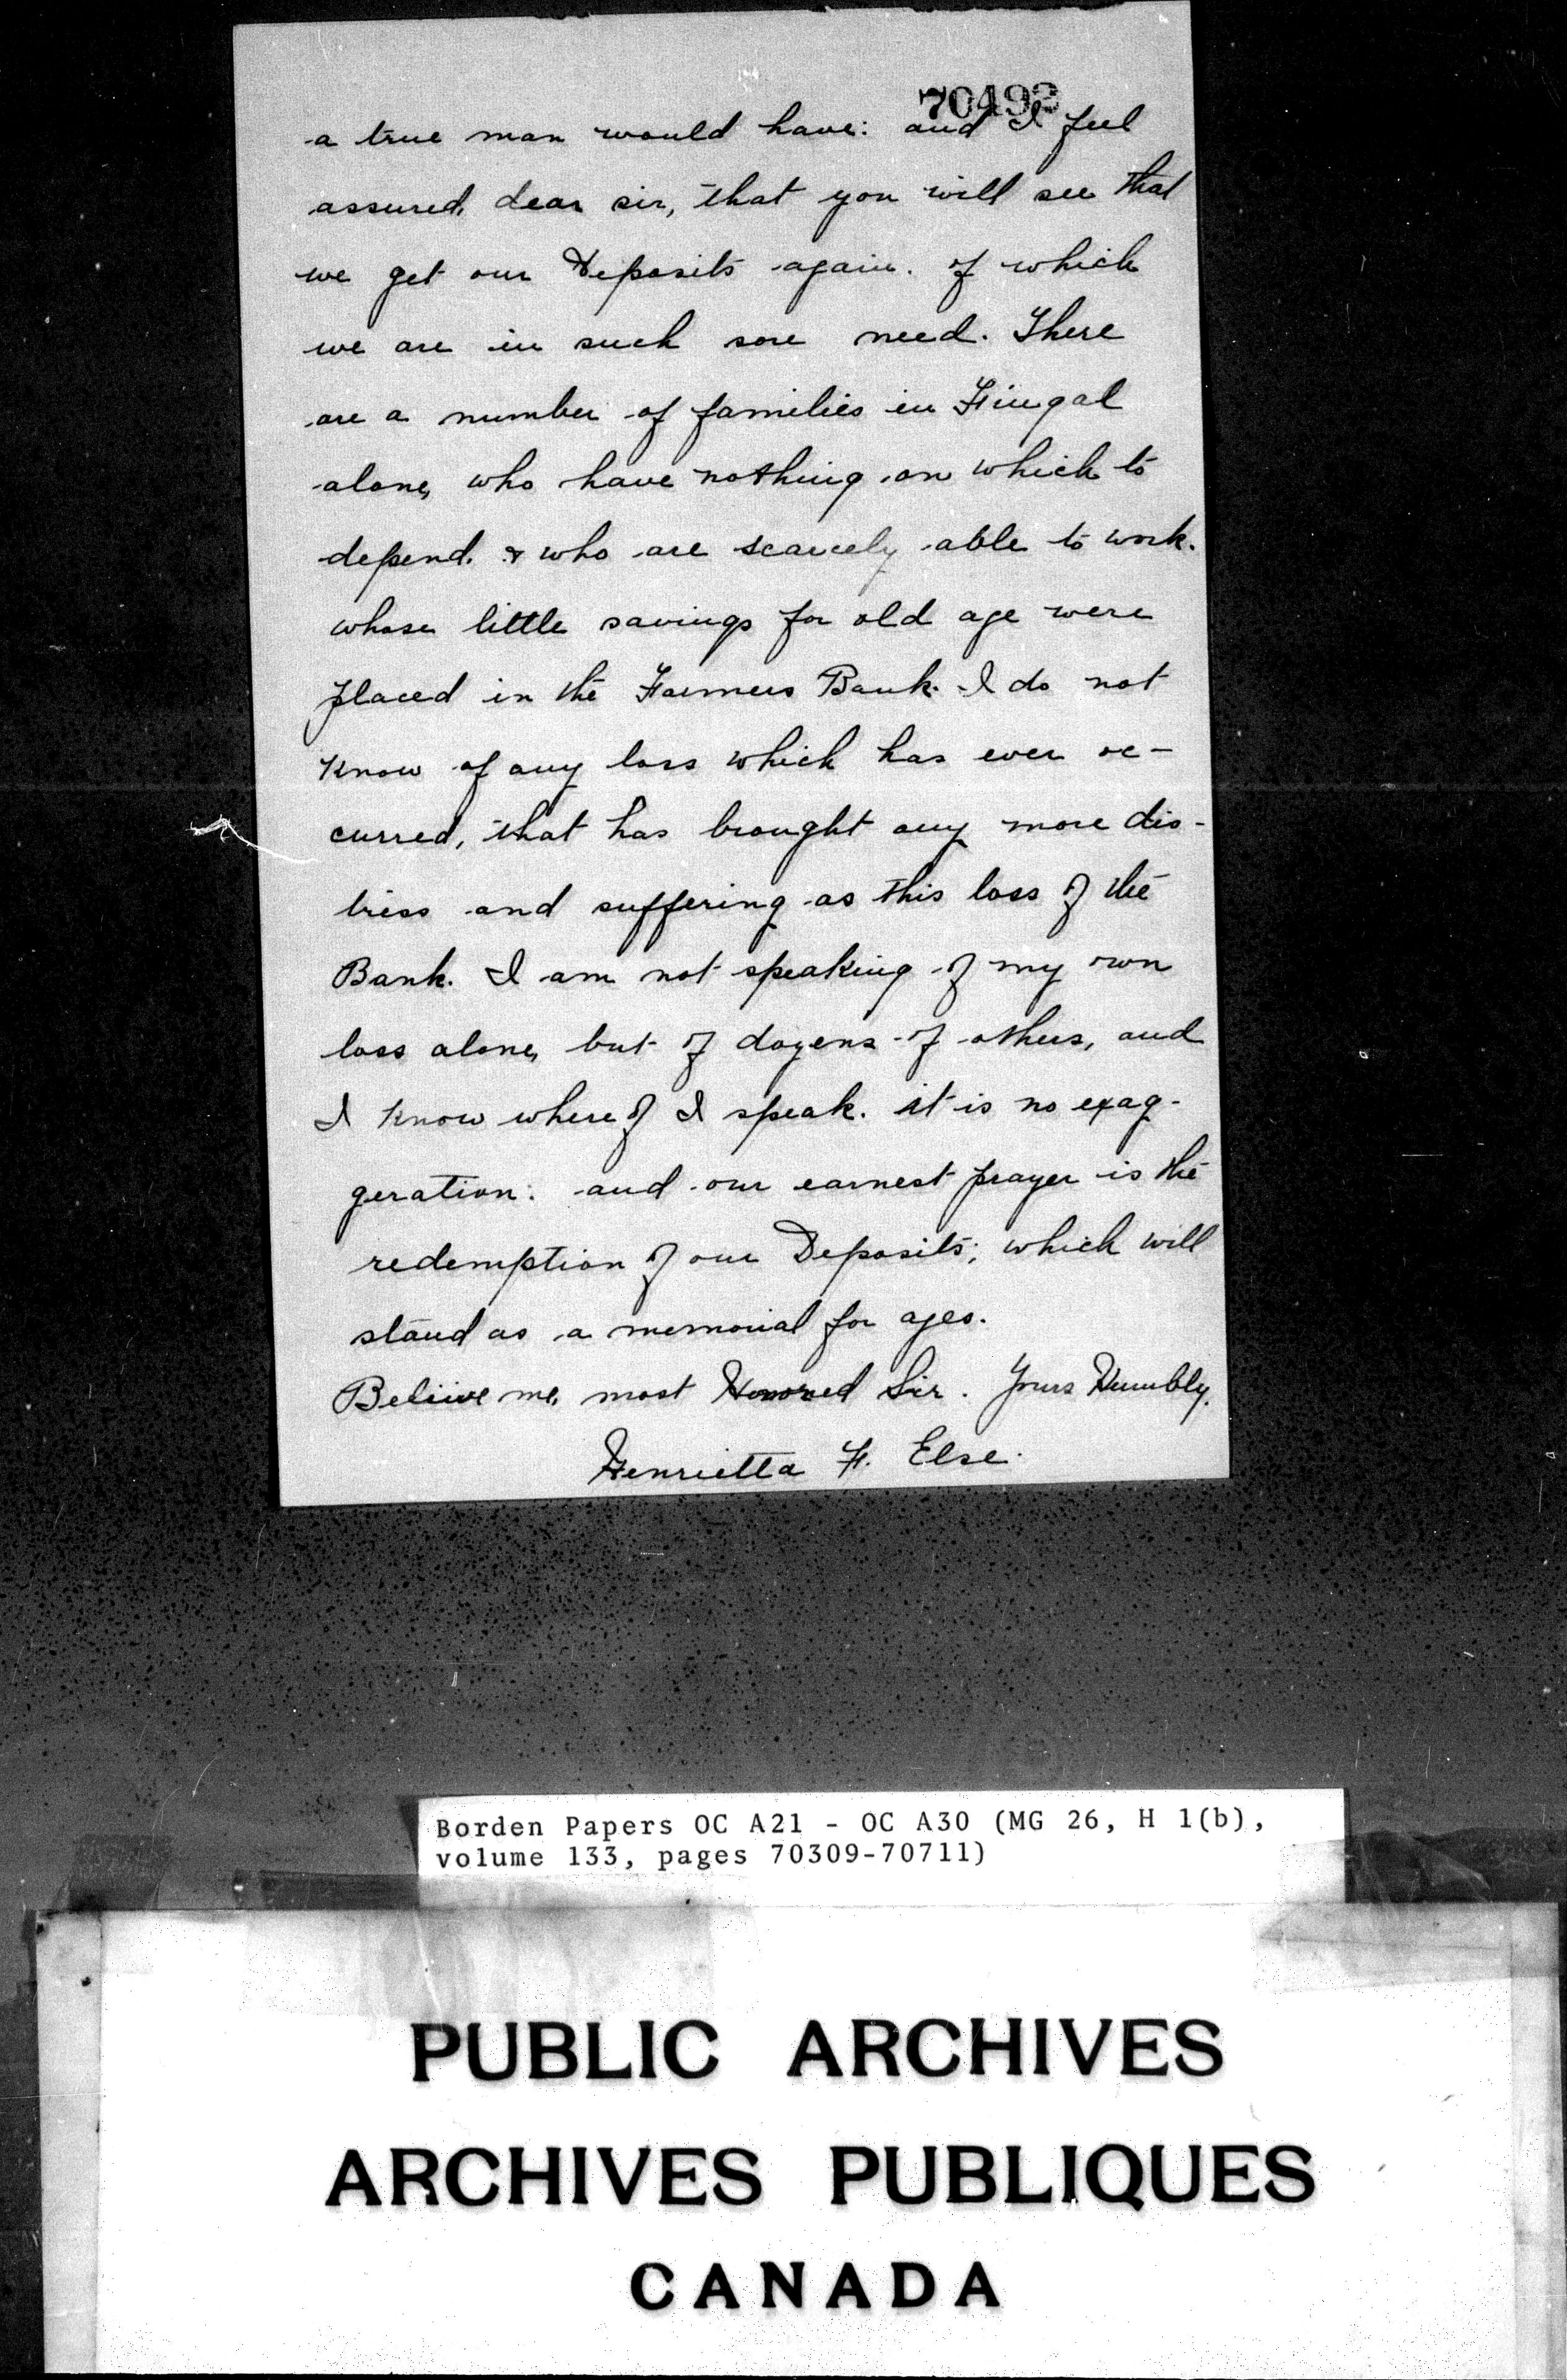 70493
a true man would have: and I feel
assured, dear sir, that you will see that
we get our Deposits again. of which
we are in such sore need. There
are a number of families in Fingal
alone, who have nothing on which to
depend. & who are scarcely able to work.
whose little savings for old age were
placed in the Farmers Bank. I do not
know of any loss which has ever oc-
curred, that has brought any more dis-
tress and suffering as this loss of the
Bank. I am not speaking of my own
loss alone, but of dozens of others, and
I know whereof I speak. it is no exag-
geration: and our earnest prayer is the
redemption of our Deposits; which will
stand as a memorial for ages.
Beliive me, most Honored Sir. Yours Humbly.
Henrietta F. Else.
Borden Papers OC A21 - OC A30 (MG 26, H 1(b),
volume 133, pages 70309-70711)
PUBLIC ARCHIVES
ARCHIVES PUBLIQUES
CANADA